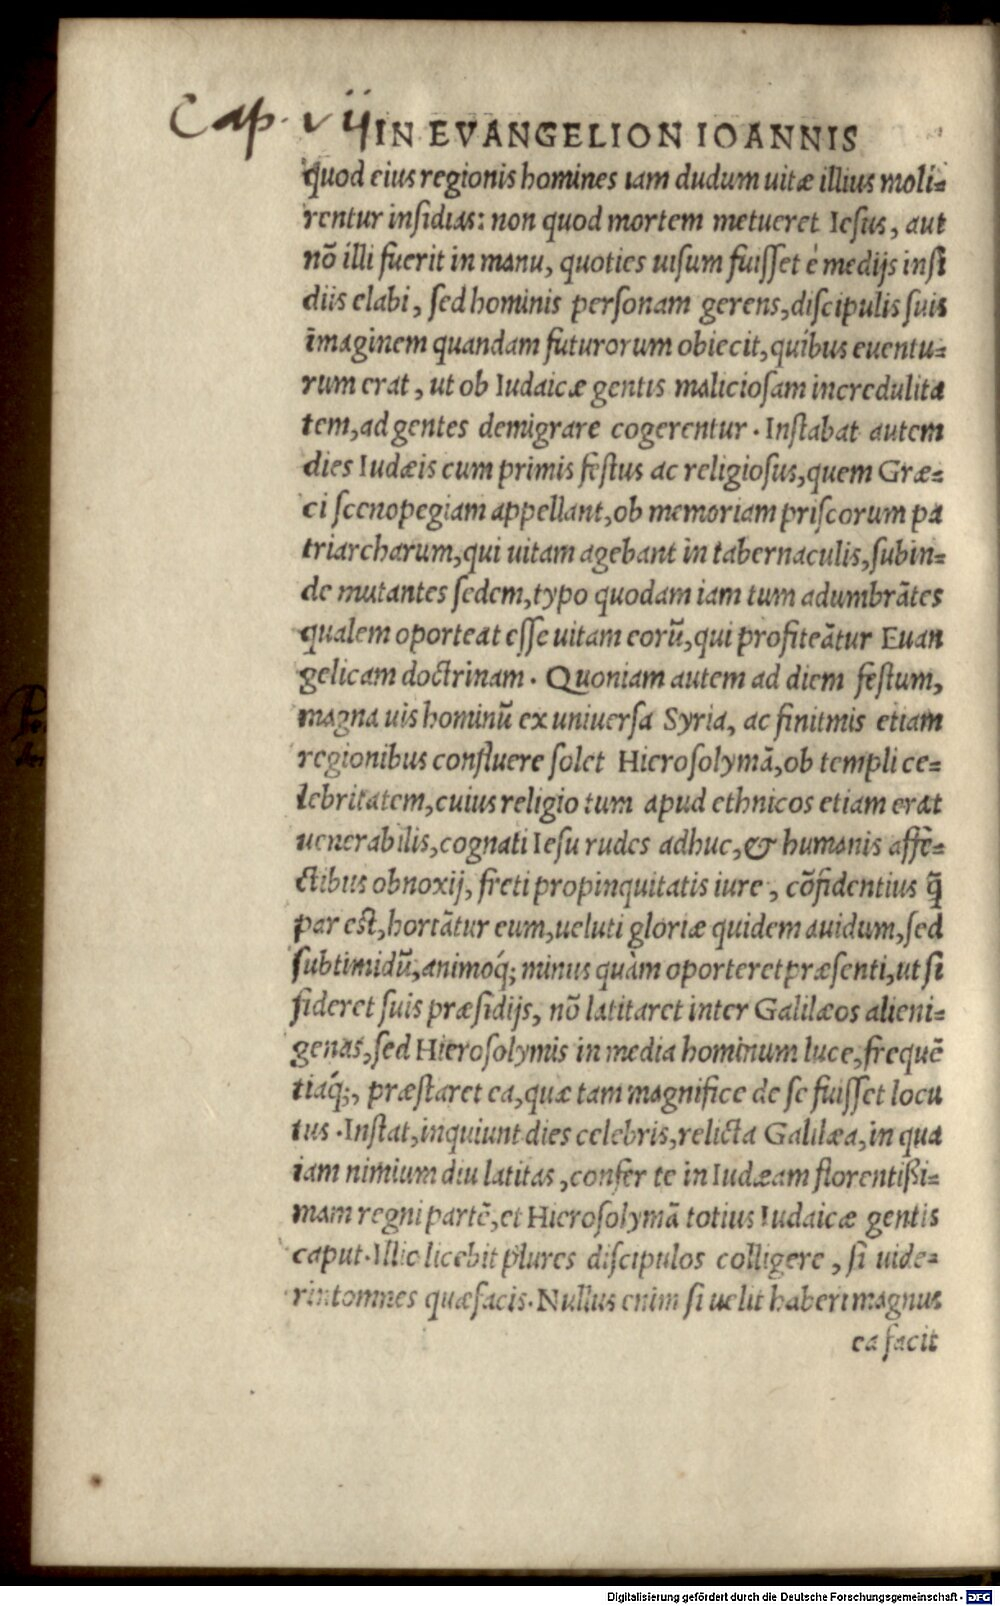 Cap. vij IN EVANGELION IOANNIS
quod eius regionis homines iam dudum uitæ illius moli=
rentur insidias: non quod mortem metueret Iesus, aut
nō illi fuerit in manu, quoties uisum fuisset è medijs insi
diis elabi, sed hominis personam gerens, discipulis suis
imaginem quandam futurorum obiecit, quibus euentu=
rum erat, ut ob Iudaicæ gentis maliciosam incredulita
tem, ad gentes demigrare cogerentur. Instabat autem
dies Iudæis cum primis festus ac religiosus, quem Græ=
ci scenopegiam appellant, ob memoriam priscorum pa
triarcharum, qui uitam agebant in tabernaculis, subin=
de mutantes sedem, typo quodam iam tum adumbrātes
qualem oporteat esse uitam eorū, qui profiteātur Euan
gelicam doctrinam. Quoniam autem ad diem festum,
magna uis hominū ex uniuersa Syria, ac finitmis etiam
regionibus confluere solet Hierosolymā, ob templi ce=
lebritatem, cuius religio tum apud ethnicos etiam erat
uenerabilis, cognati Iesu rudes adhuc, & humanis affe=
ctibus obnoxij, freti propinquitatis iure, cōfidentius q̄
par est, hortātur eum, ueluti gloriæ quidem auidum, sed
subtimidū, animoq́; minus quàm oporteret præsenti, ut si
fideret suis præsidijs, nō latitaret inter Galilæos alieni=
genas, sed Hierosolymis in media hominum luce, frequē
tiaq́;, præstaret ea, quæ tam magnifice de se fuisset locu
tus. Instat, inquiunt dies celebris, relicta Galilæa, in qua
iam nimium diu latitas, confer te in Iudæam florentißi=
mam regni partē, et Hierosolymā totius Iudaicæ gentis
caput. Illic licebit plures discipulos colligere, si uide=
rint omnes quæ facis. Nullus enim si uelit haberi magnus
ea facit
Digitalisierung gefördert durch die Deutsche Forschungsgemeinschaft - DFG